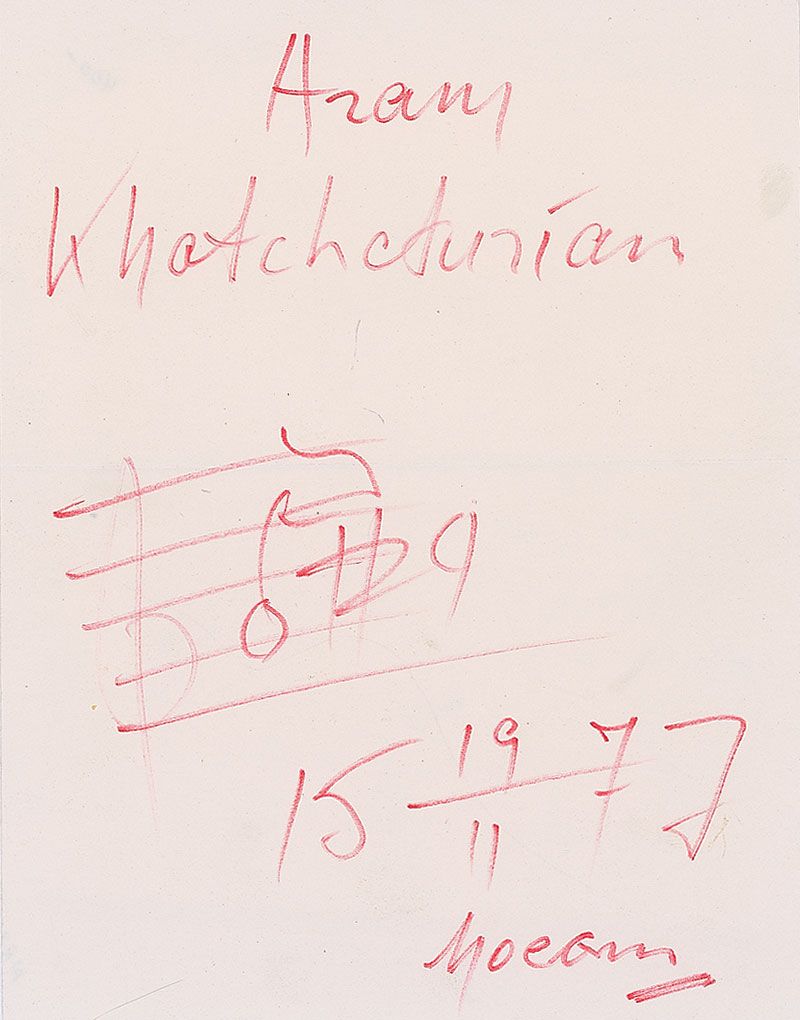 Aram
Khatchaturian
15 19/11 77